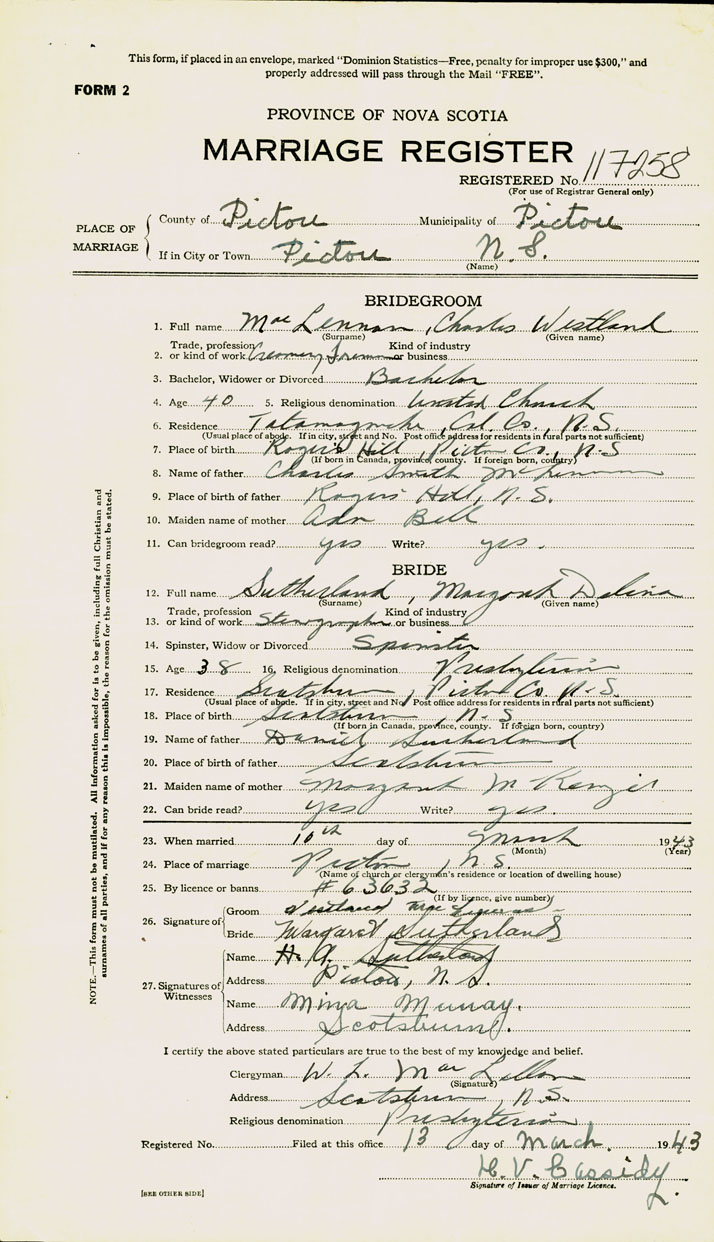 This form, if placed in an envelope, marked "Dominion Statistics—Free, penalty for improper use $300," and
properly addressed will pass through the Mail "FREE".
FORM 2
PROVINCE OF NOVA SCOTIA
MARRIAGE REGISTER
REGISTERED No. 117258
(For use of Registrar General only)
PLACE OF MARRIAGE
County of Pictou Municipality of Pictou
If in City or Town Pictou N. S.
(Name)
BRIDEGROOM
1. Full name Mac Lennan, Charles Westland
(Surname) (Given name)
Trade, profession Kind of industry
2. or kind of work Creamery or business
3. Bachelor, Widower or Divorced Bachelor
4. Age 40 5. Religious denomination United Church
6. Residence Tatamagouche, Col. Co., N.S.
(Usual place of abode. If in city, street and No. Post office address for residents in rural parts not sufficient)
7. Place of birth Rogers Hill, Pictou Co., N-S
(If born in Canada, province, county. If foreign born, country)
8. Name of father Charles Smith McLennan
9. Place of birth of father Rogers Hill, N.S.
10. Maiden name of mother Ada Bell
11. Can bridegroom read? yes Write? yes.
BRIDE
12. Full name Sutherland, Margaret Dolina
(Surname) (Given name)
Trade, profession Kind of industry
13. or kind of work Stenographer or business
14. Spinster, Widow or Divorced Spinster
15. Age 38 16. Religious denomination Presbyterian
17. Residence Scotsburn, Pictou Co. N-S.
(Usual place of abode. If in city, street and No. Post office address for residents in rural parts not sufficient)
18. Place of birth Scotsburn, N-S
(If born in Canada, province, county. If foreign born, country)
19. Name of father Daniel Sutherland
20. Place of birth of father Scotsburn
21. Maiden name of mother Margaret McKenzie
22. Can bride read? yes Write? yes.
23. When married 10th day of March 1943
(Month) (Year)
24. Place of marriage Pictou, N.S.
(Name of church or clergyman's residence or location of dwelling house)
25. By licence or banns # 63632
(If by licence, give number)
26. Signature of
Groom Westland
Bride Margaret Sutherland
27. Signatures of Witnesses
Name H. A. Sutherland
Address Pictou, N.S.
Name Mina Murray.
Address Scotsburn.
I certify the above stated particulars are true to the best of my knowledge and belief.
Clergyman W. L. Mac Lellan
(Signature)
Address Scotsburn, N.S.
Religious denomination Presbyterian
Registered No. Filed at this office 13 day of March 1943
H. V. Cassidy
Signature of Issuer of Marriage Licence.
[SEE OTHER SIDE]
NOTE.—This form must not be mutilated. All information asked for is to be given, including full Christian and
surnames of all parties, and if for any reason this is impossible, the reason for the omission must be stated.